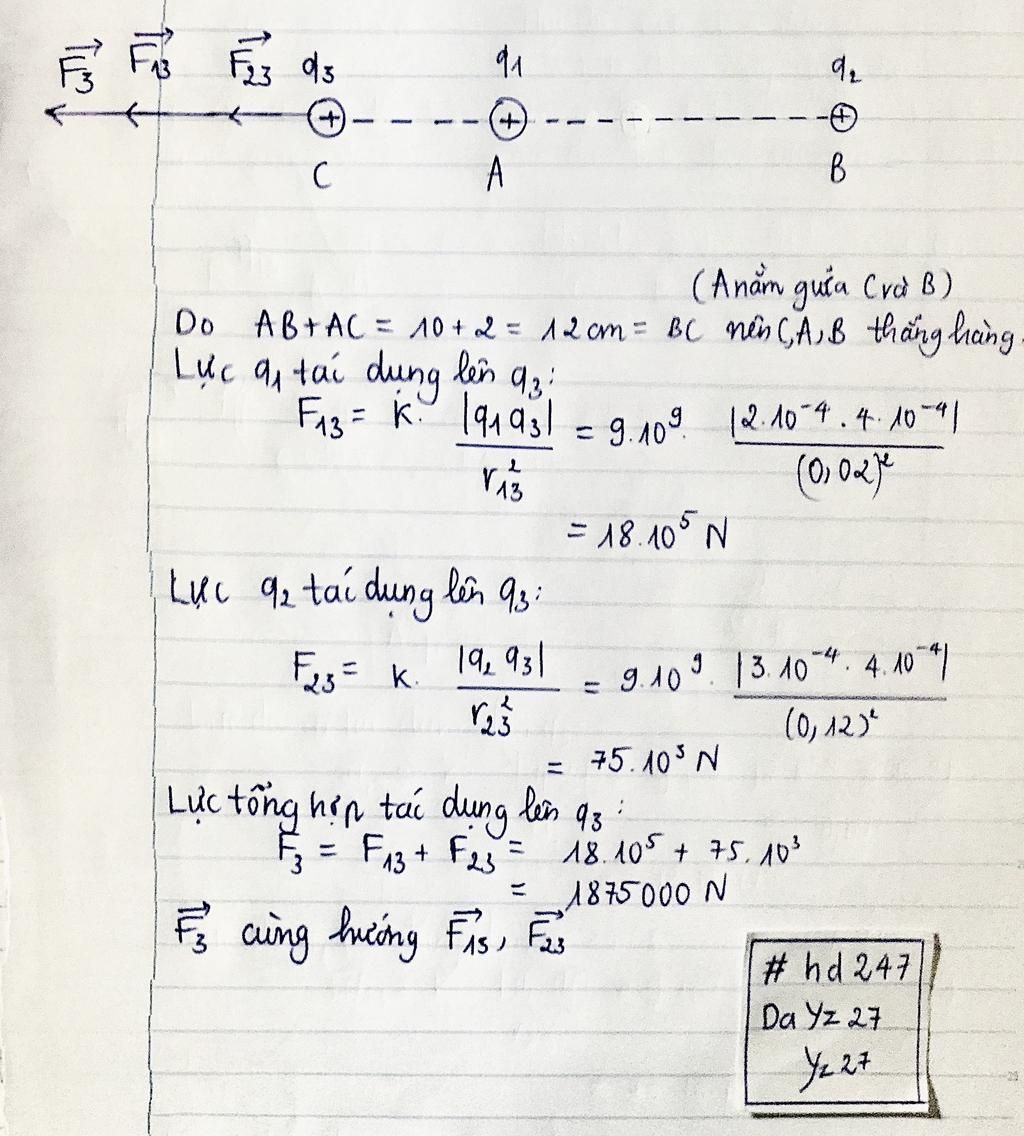 F₃ F₁₃ F₂₃ q₃ q₁ q₂
+ + +
C A B
(A nằm giữa C và B)
Do AB + AC = 10 + 2 = 12 cm = BC nên C, A, B thẳng hàng.
Lực q₁ tác dụng lên q₃:
F₁₃ = k. |q₁ q₃| / r₁₃² = 9.10⁹. |2.10⁻⁴ . 4.10⁻⁴| / (0,02)²
= 18.10⁵ N
Lực q₂ tác dụng lên q₃:
F₂₃ = k. |q₂ q₃| / r₂₃² = 9.10⁹. |3.10⁻⁴. 4.10⁻⁴| / (0,12)²
= 75.10³ N
Lực tổng hợp tác dụng lên q₃:
F₃ = F₁₃ + F₂₃ = 18.10⁵ + 75.10³
= 1875000 N
F₃ cùng hướng F₁₃, F₂₃
# hd 247
Da Yz 27
Yz 27